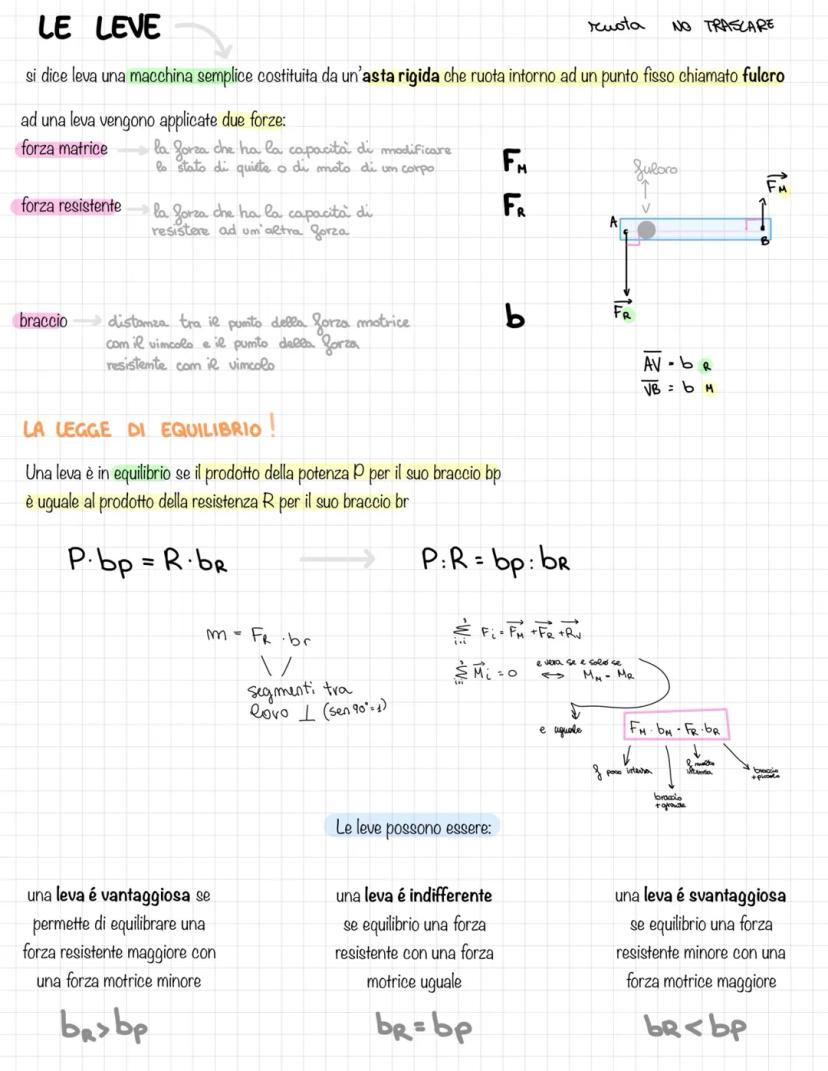 LE LEVE
ruota NO TRASLARE
si dice leva una macchina semplice costituita da un'asta rigida che ruota intorno ad un punto fisso chiamato fulcro
ad una leva vengono applicate due forze:
forza matrice la forza che ha la capacità di modificare
lo stato di quiete o di moto di un corpo
FM
forza resistente la forza che ha la capacità di
resistere ad un'altra forza
FR
fulcro
V
FM
A
B
FR
braccio distanza tra il punto della forza motrice
con il vincolo e il punto della forza
resistente con il vincolo
b
AV = b R
VB = b M
LA LEGGE DI EQUILIBRIO!
Una leva è in equilibrio se il prodotto della potenza P per il suo braccio bp
è uguale al prodotto della resistenza R per il suo braccio br
P·bp = R·bR
P:R = bp:bR
m = FR · br
segmenti tra
loro ⊥ (sen 90°=1)
Σ Fi = FM + FR + RV
Σ Mi = 0 ↔ MM = MR
e vera se e solo se
e uguale
FM · bM = FR · bR
f poco intensa
braccio
+ grande
f molto
intensa
braccio
+ piccolo
Le leve possono essere:
una leva é vantaggiosa se
permette di equilibrare una
forza resistente maggiore con
una forza motrice minore
bR>bp
una leva é indifferente
se equilibrio una forza
resistente con una forza
motrice uguale
bR=bp
una leva é svantaggiosa
se equilibrio una forza
resistente minore con una
forza motrice maggiore
bR<bp